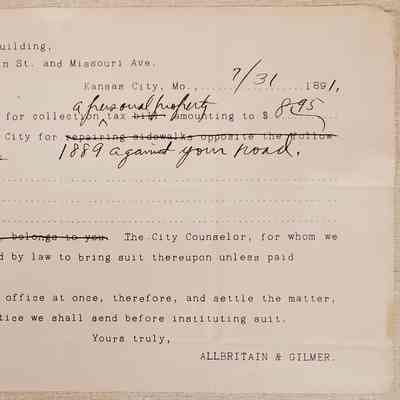 uilding,
n St. and Missouri Ave.
Kansas City, Mo., 7/31 1891,
a personal property
for collection ^ tax bill amounting to $ 8.95
City for repairing sidewalks opposite the follow-
1889 against your road.
, belongs to you. The City Counselor, for whom we
d by law to bring suit thereupon unless paid
office at once, therefore, and settle the matter,
tice we shall send before instituting suit.
Yours truly,
ALLBRITAIN & GILMER.